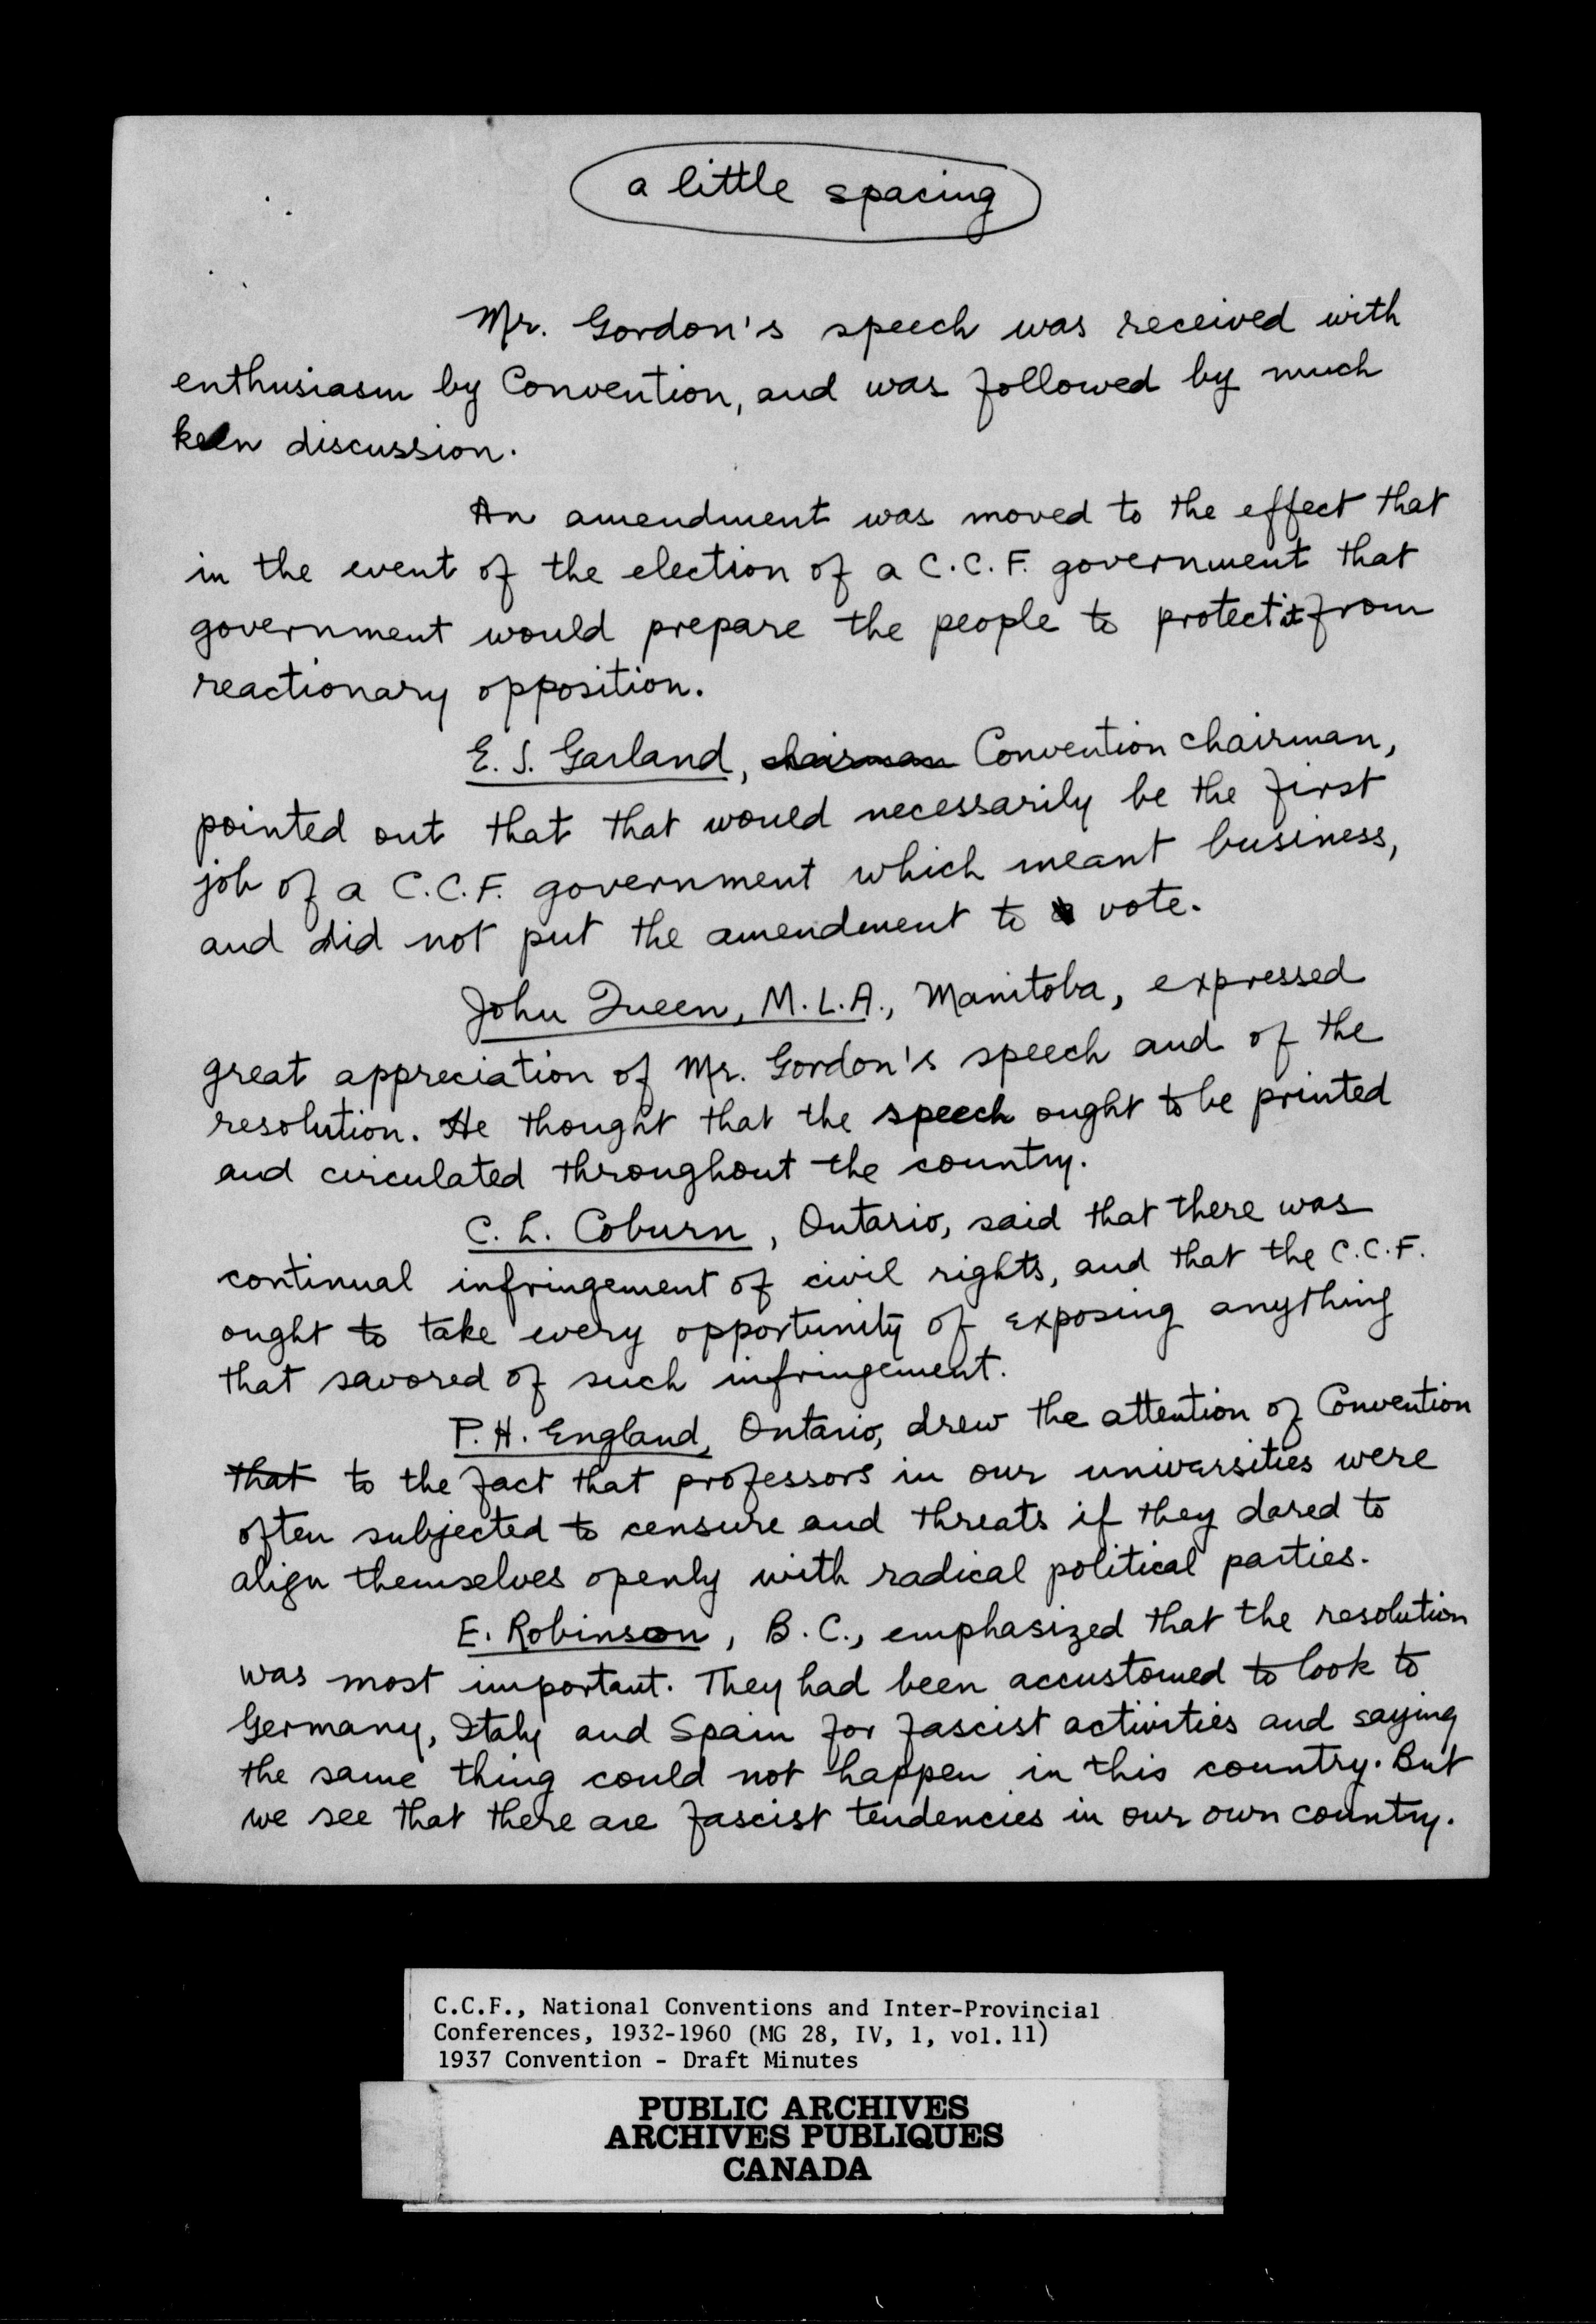 a little spacing
Mr. Gordon's speech was received with
enthusiasm by Convention, and was followed by much
keen discussion.
An amendment was moved to the effect that
in the event of the election of a C.C.F. government that
government would prepare the people to protect it from
reactionary opposition.
E. J. Garland, chairman Convention chairman,
pointed out that that would necessarily be the first
job of a C.C.F. government which meant business,
and did not put the amendment to vote.
John Queen, M.L.A., Manitoba, expressed
great appreciation of Mr. Gordon's speech and of the
resolution. He thought that the speech ought to be printed
and circulated throughout the country.
C. L. Coburn, Ontario, said that there was
continual infringement of civil rights, and that the C.C.F.
ought to take every opportunity of exposing anything
that savored of such infringement.
P. H. England, Ontario, drew the attention of Convention
that to the fact that professors in our universities were
often subjected to censure and threats if they dared to
align themselves openly with radical political parties.
E. Robinson, B.C., emphasized that the resolution
was most important. They had been accustomed to look to
Germany, Italy and Spain for fascist activities and saying
the same thing could not happen in this country. But
we see that there are fascist tendencies in our own country.
C.C.F., National Conventions and Inter-Provincial
Conferences, 1932-1960 (MG 28, IV, 1, vol. 11)
1937 Convention - Draft Minutes
PUBLIC ARCHIVES
ARCHIVES PUBLIQUES
CANADA